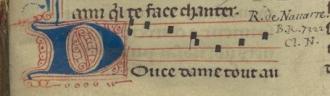 ami q̃l te face chanter. R. de Navarre
B.R. 7222
Cl. N.
Douce dame tout au